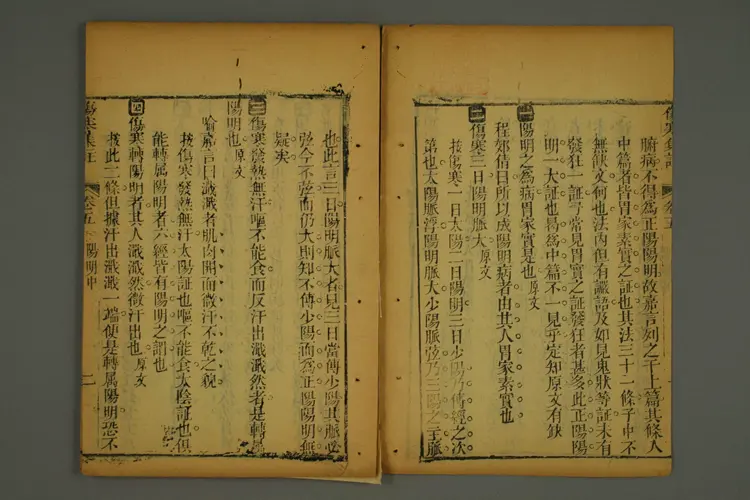 傷寒集註 卷五
腑病不得爲正陽陽明故嘉言列之于上篇其條入
中篇者皆胃家素實之証也其法三十一條予中不
無缺文何也法內但有讝語及如見鬼狀等証未有
發狂一証予常見胃實之証發狂者甚多此正陽陽
明一大証也曷爲中篇不一見乎定知原文有缺
一 陽明之爲病胃家實是也原文
程郊倩曰所以成陽明病者由其人胃家素實也
二 傷寒三日陽明脈大原文
按傷寒一日太陽二日陽明三日少陽乃傳經之次
第也太陽脈浮陽明脈大少陽脈弦乃三陽之主脈
也此言三日陽明脈大者見三日當傳少陽其脈必
弦今不弦而仍大則知不傳少陽而爲正陽陽明無
疑矣
三 傷寒發熱無汗嘔不能食而反汗出濈濈然者是轉屬
陽明也原文
喻嘉言曰濈濈者肌肉開而微汗不乾之貌
按傷寒發熱無汗太陽証也嘔不能食太陰証也俱
能轉屬陽明者六經皆有陽明之謂也
四 傷寒轉陽明者其人濈濈然微汗出也原文
按此二條但據汗出濈濈一端便是轉屬陽明恐不
傷寒集註 卷五 陽明中 二